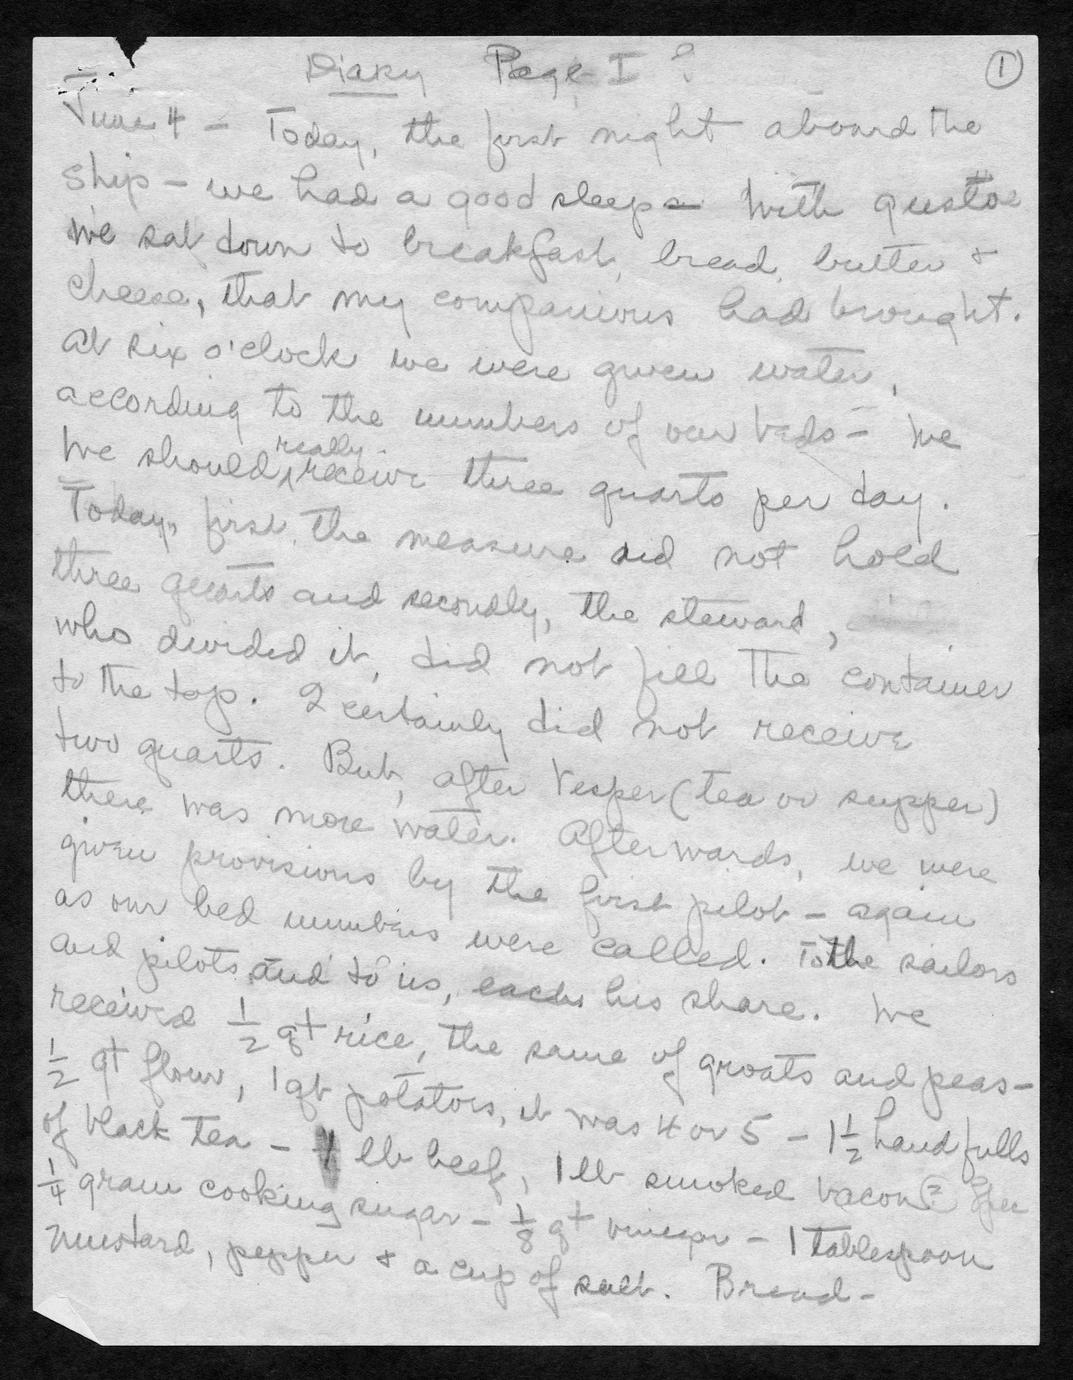 Diary Page I ? 1
June 4 – Today, the first night aboard the
ship – we had a good sleep – With gusto
we sat down to breakfast, bread, butter &
cheese, that my companions had brought.
At six o'clock we were given water,
according to the numbers of our beds – We
We should really receive three quarts per day.
Today, first, the measure did not hold
three quarts and secondly, the steward,
who divided it, did not fill the container
to the top. I certainly did not receive
two quarts. But, after Vesper (tea or supper)
there was more water. Afterwards, we were
given provisions by the first pilot – again
as our bed numbers were called. To the sailors
and pilots and to us, each his share. We
received 1/2 qt rice, the same of groats and peas –
1/2 qt flour, 1 qt potatoes, it was 4 or 5 – 1 1/2 handfulls
of black tea – 1 lb beef, 1 lb smoked bacon ?
1/4 gram cooking sugar – 1/8 qt vinegar – 1 tablespoon
mustard, pepper & a cup of salt. Bread –